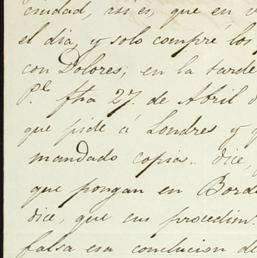 ciudad, así es, que en v
el día, y solo compré los
con Dolores; en la tarde
Pl. fha 27 de Abril
que pide á Londres y
mandado copias. dice,
que pongan en Bord
dice, que sus procedim
falsa esa conclucion de